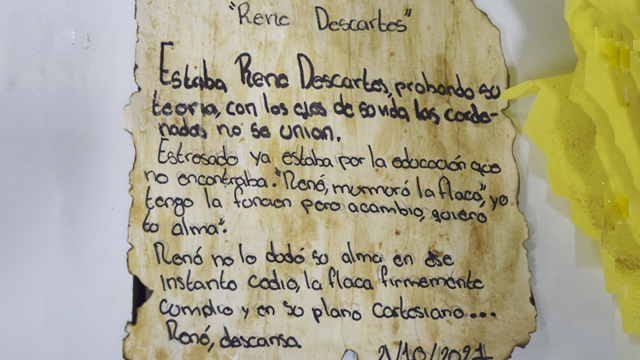 "Rene Descartes"
Estaba Rene Descartes, probando su
teoria, con los ejes de su vida las corde-
nadas no se unian.
Estresado ya estaba por la educación que
no encontraba. "René, murmuró la flaca", yo
tengo la funcion pero acambio, quiero
tu alma".
René no lo dudó su alma en ese
instante cedio, la flaca firmemente
cumplio y en su plano cartesiano...
René, descansa
2/10/2021